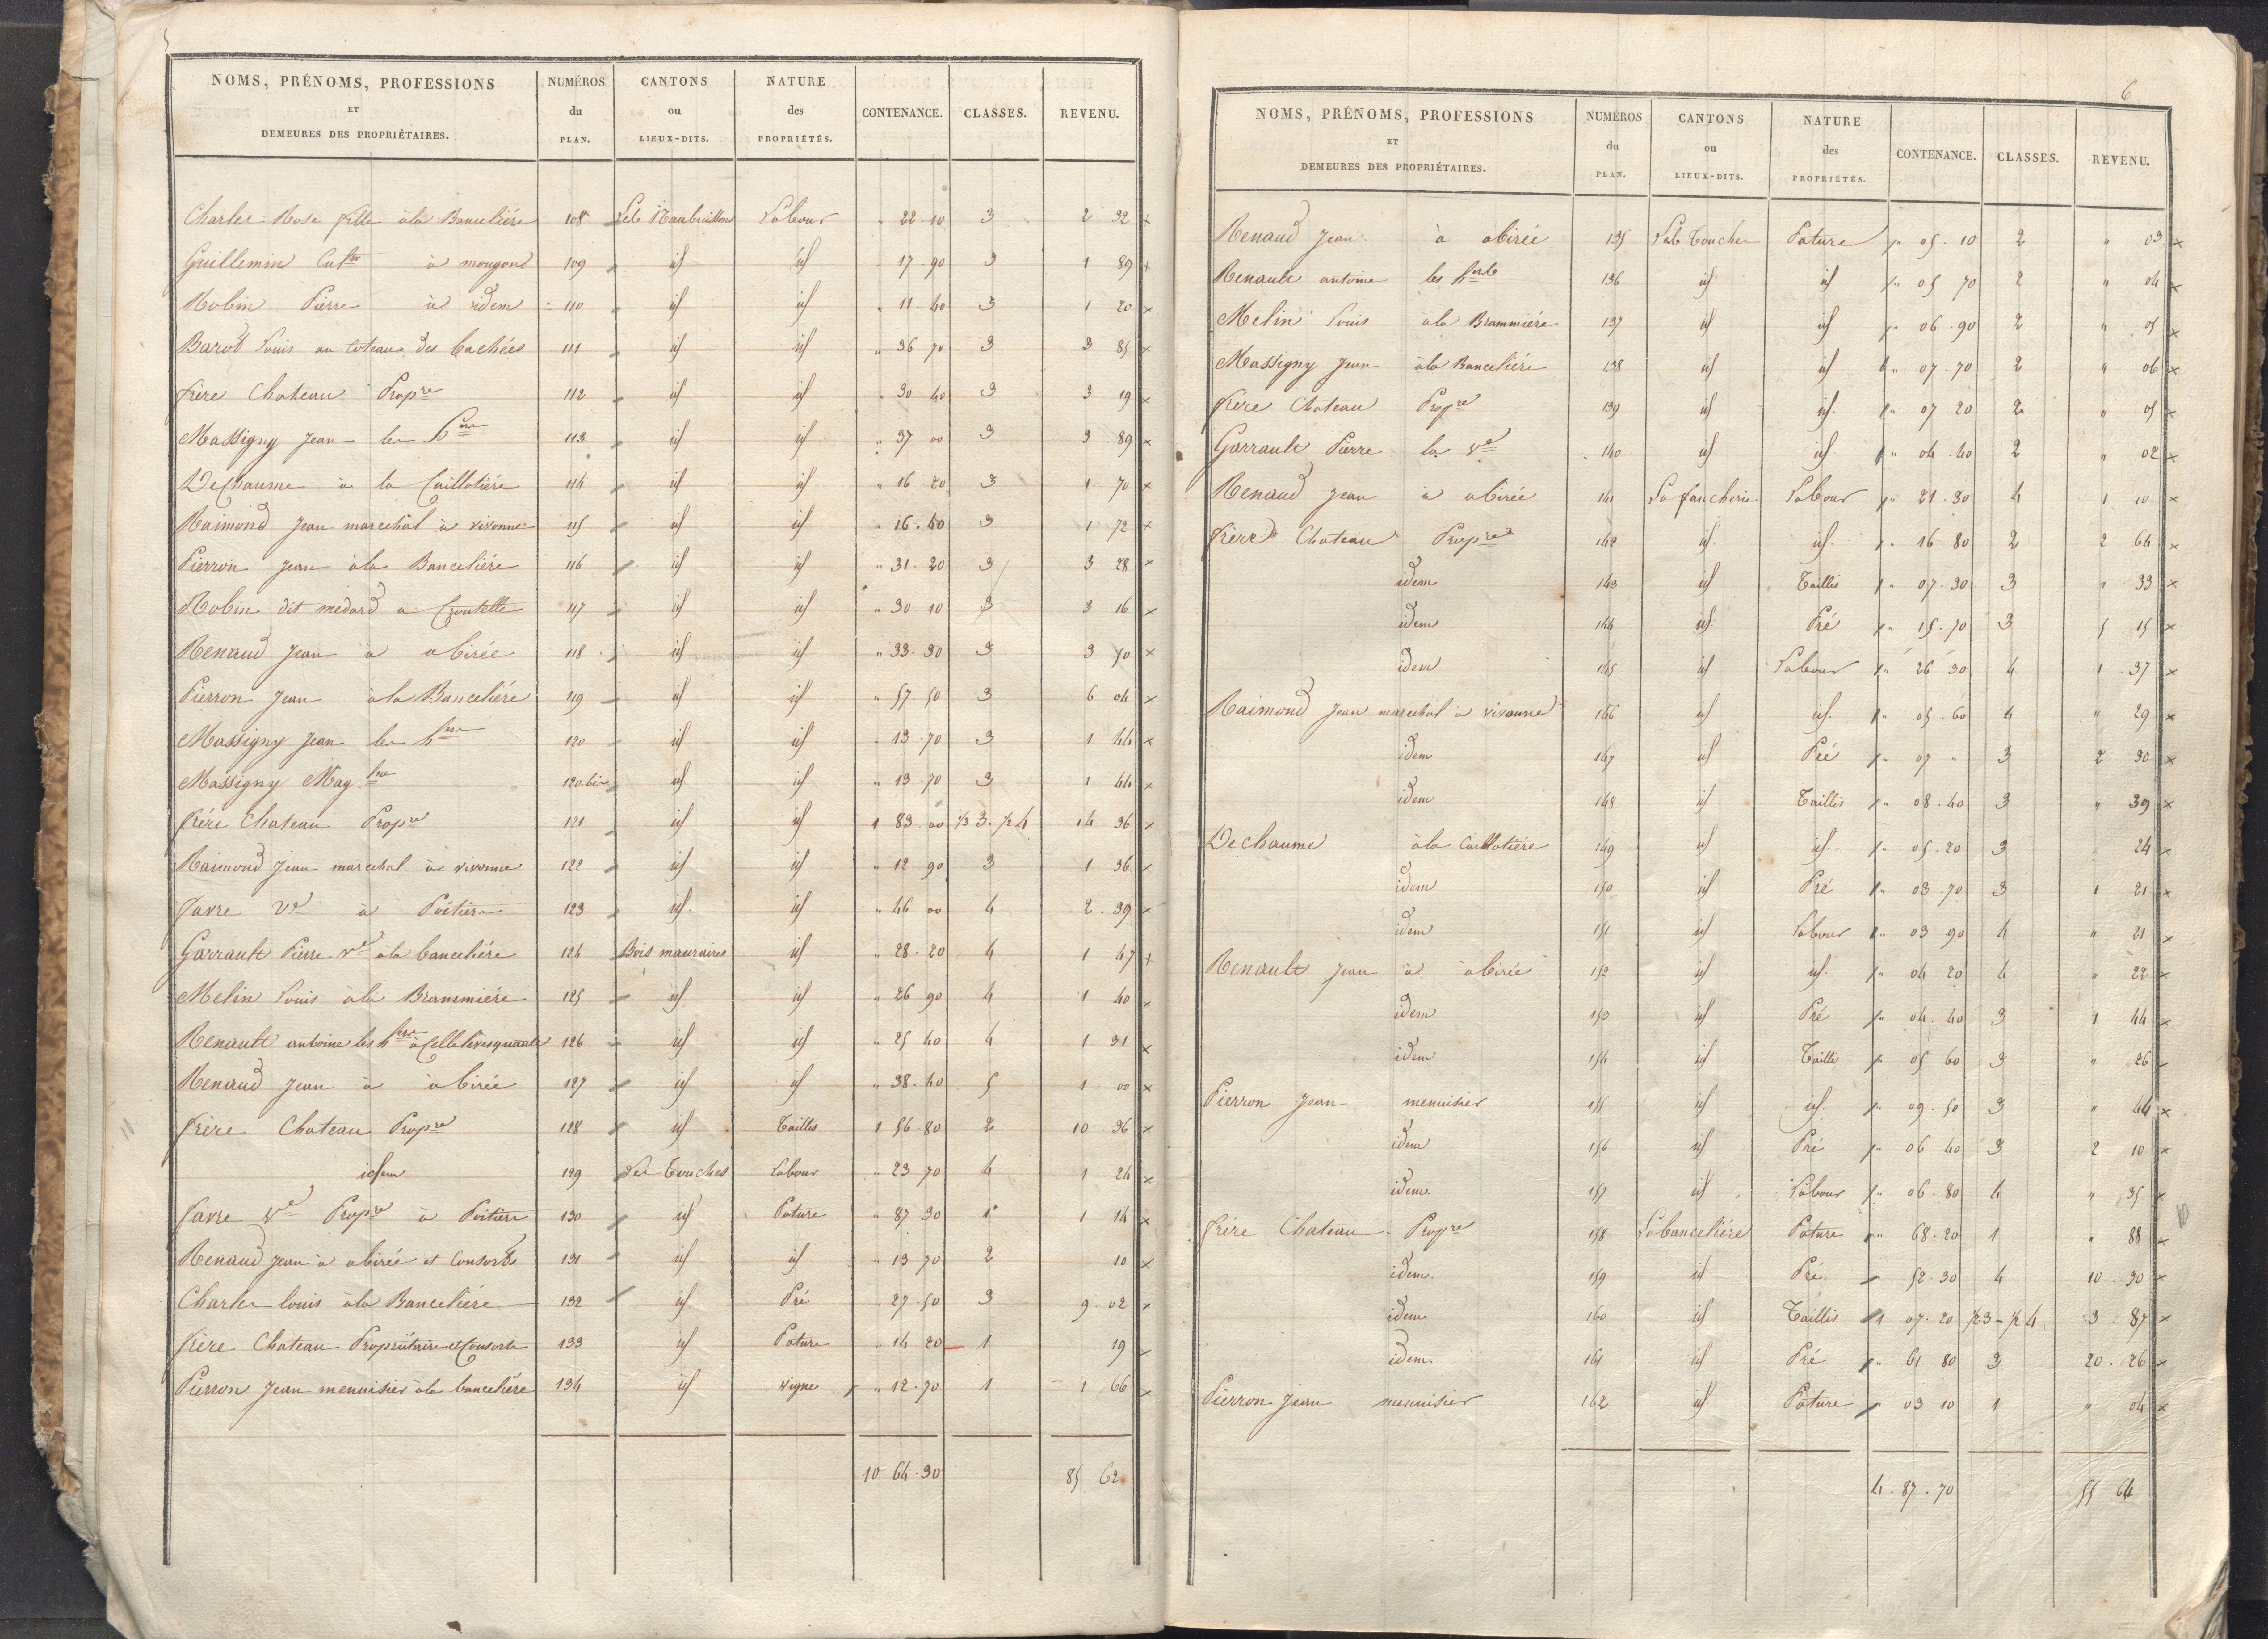 NOMS, PRÉNOMS, PROFESSIONS ET DEMEURES DES PROPRIÉTAIRES. NUMÉROS du PLAN. CANTONS ou LIEUX-DITS. NATURE des PROPRIÉTÉS. CONTENANCE. CLASSES. REVENU.
Charles Rose fille à la Banceliére 108 Labour " 22 10 3 2 32 x
Guillemin à mougon 109 id id " 17 90 3 1 89 x
Robin Pierre à idem 110 id id " 11 40 3 1 20 x
Barot Louis au coteau des Cachées 111 id id " 36 70 3 3 85 x
frère Chateau Propre 112 id id " 30 40 3 3 19 x
Massigny Jean les 113 id id " 37 00 3 3 89 x
Dechaume à la Caillotière 114 id id " 16 20 3 1 70 x
Raimond Jean marechal à vivonne 115 id id " 16 40 3 1 72 x
Pierron Jean à la Banceliére 116 id id " 31 20 3 3 28 x
Robin dit medard a Croutelle 117 id id " 30 10 3 3 16 x
Renaud Jean à abirée 118 id id " 33 30 3 3 50 x
Pierron Jean à la Banceliére 119 id id " 57 50 3 6 04 x
Massigny Jean les hers 120 id id " 13 70 3 1 44 x
Massigny Mag 120 bis id id " 13 70 3 1 44 x
frère Chateau Propre 121 id id 1 83 00 1/2 3. 1/2 4 14 36 x
Raimond Jean marechal à vivonne 122 id id " 12 90 3 1 36 x
favre Ve à Poitiers 123 id id " 46 00 4 2 39 x
Garrault Pierre ve à la banceliére 124 Bois mauraires id " 28 20 4 1 47 x
Melin Louis à la Brammiére 125 id id " 26 90 4 1 40 x
Renault antoine les hers à Cellelevesquault 126 id id " 25 40 4 1 31 x
Renaud Jean à abirée 127 id id " 38 40 5 1 00 x
frère Chateau Propre 128 id Taillis 1 56 80 2 10 36 x
idem 129 Les Touches Labour " 23 70 4 1 24 x
favre Ve Propre à Poitiers 130 id Pature " 87 30 1 1 14 x
Renaud Jean à abirée et Consorts 131 id id " 13 70 2 10 x
Charles louis à la Banceliére 132 id Pré " 27 50 3 9 02 x
frère Chateau Propriétaire et Consorts 133 id Pature " 14 20 1 19 x
Pierron Jean menuisier à la banceliére 134 id vigne " 12 70 1 1 66 x
10 64 30 85 62
6
NOMS, PRÉNOMS, PROFESSIONS ET DEMEURES DES PROPRIÉTAIRES. NUMÉROS du PLAN. CANTONS ou LIEUX-DITS. NATURE des PROPRIÉTÉS. CONTENANCE. CLASSES. REVENU.
Renaud Jean à abirée 135 Les Touches Pature " 05 10 2 " 03 x
Renault antoine les hers 136 id id " 05 70 2 " 04 x
Melin Louis à la Brammiére 137 id id " 06 90 2 " 05 x
Massigny Jean à la Banceliére 138 id id " 07 70 2 " 06 x
frere Chateau Propre 139 id id " 07 20 2 " 05 x
Garrault Pierre la ve 140 id id " 04 40 2 " 02 x
Renaud Jean à abirée 141 La faucherie Labour " 21 30 4 1 10 x
frère Chateau Propre 142 id id " 16 80 2 2 64 x
idem 143 id Taillis " 07 30 3 " 33 x
idem 144 id Pré " 15 70 3 5 15 x
idem 145 id Labour " 26 30 4 1 37 x
Raimond Jean marechal à vivonne 146 id id " 05 60 4 " 29 x
idem 147 id Pré " 07 " 3 2 30 x
idem 148 id Taillis " 08 40 3 " 39 x
Dechaume à la Caillotière 149 id id " 05 20 3 24 x
idem 150 id Pré " 03 70 3 1 21 x
idem 151 id Labour " 03 90 4 " 21 x
Renault Jean à abirée 152 id id " 04 20 4 " 22 x
idem 153 id Pré " 04 40 3 1 44 x
idem 154 id Taillis " 05 60 3 " 26 x
Pierron Jean menuisier 155 id id " 09 50 3 " 44 x
idem 156 id Pré " 06 40 3 2 10 x
idem 157 id Labour " 06 80 4 " 35 x
frère Chateau Propre 158 La banceliére Pature " 68 20 1 " 88 x
idem 159 id Pré " 52 30 4 10 30 x
idem 160 id Taillis 1 07 20 1/2 3 - 1/2 4 3 87 x
idem 161 id Pré " 61 80 3 20 26 x
Pierron Jean menuisier 162 id Pature " 03 10 1 " 04 x
4 87 70 55 64